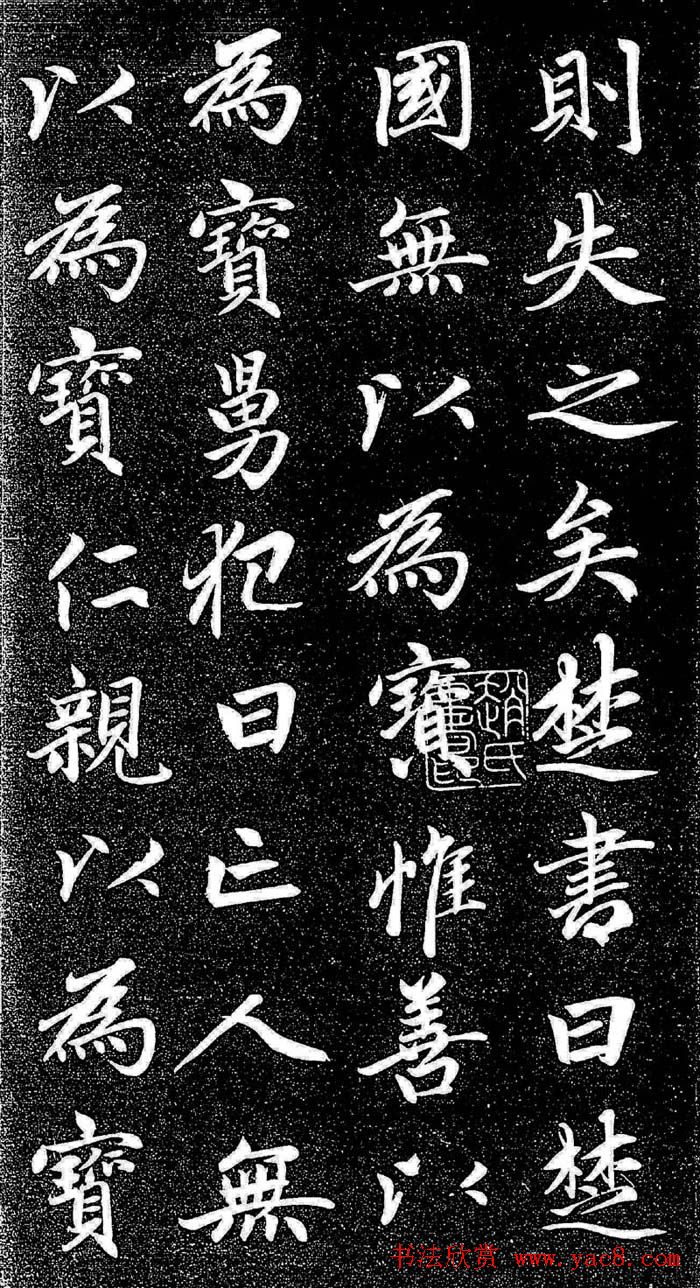 則失之矣楚書曰楚
國無以為寶惟善以
為寶舅犯曰亡人無
以為寶仁親以為寶
趙氏
书法欣赏 www.yac8.com